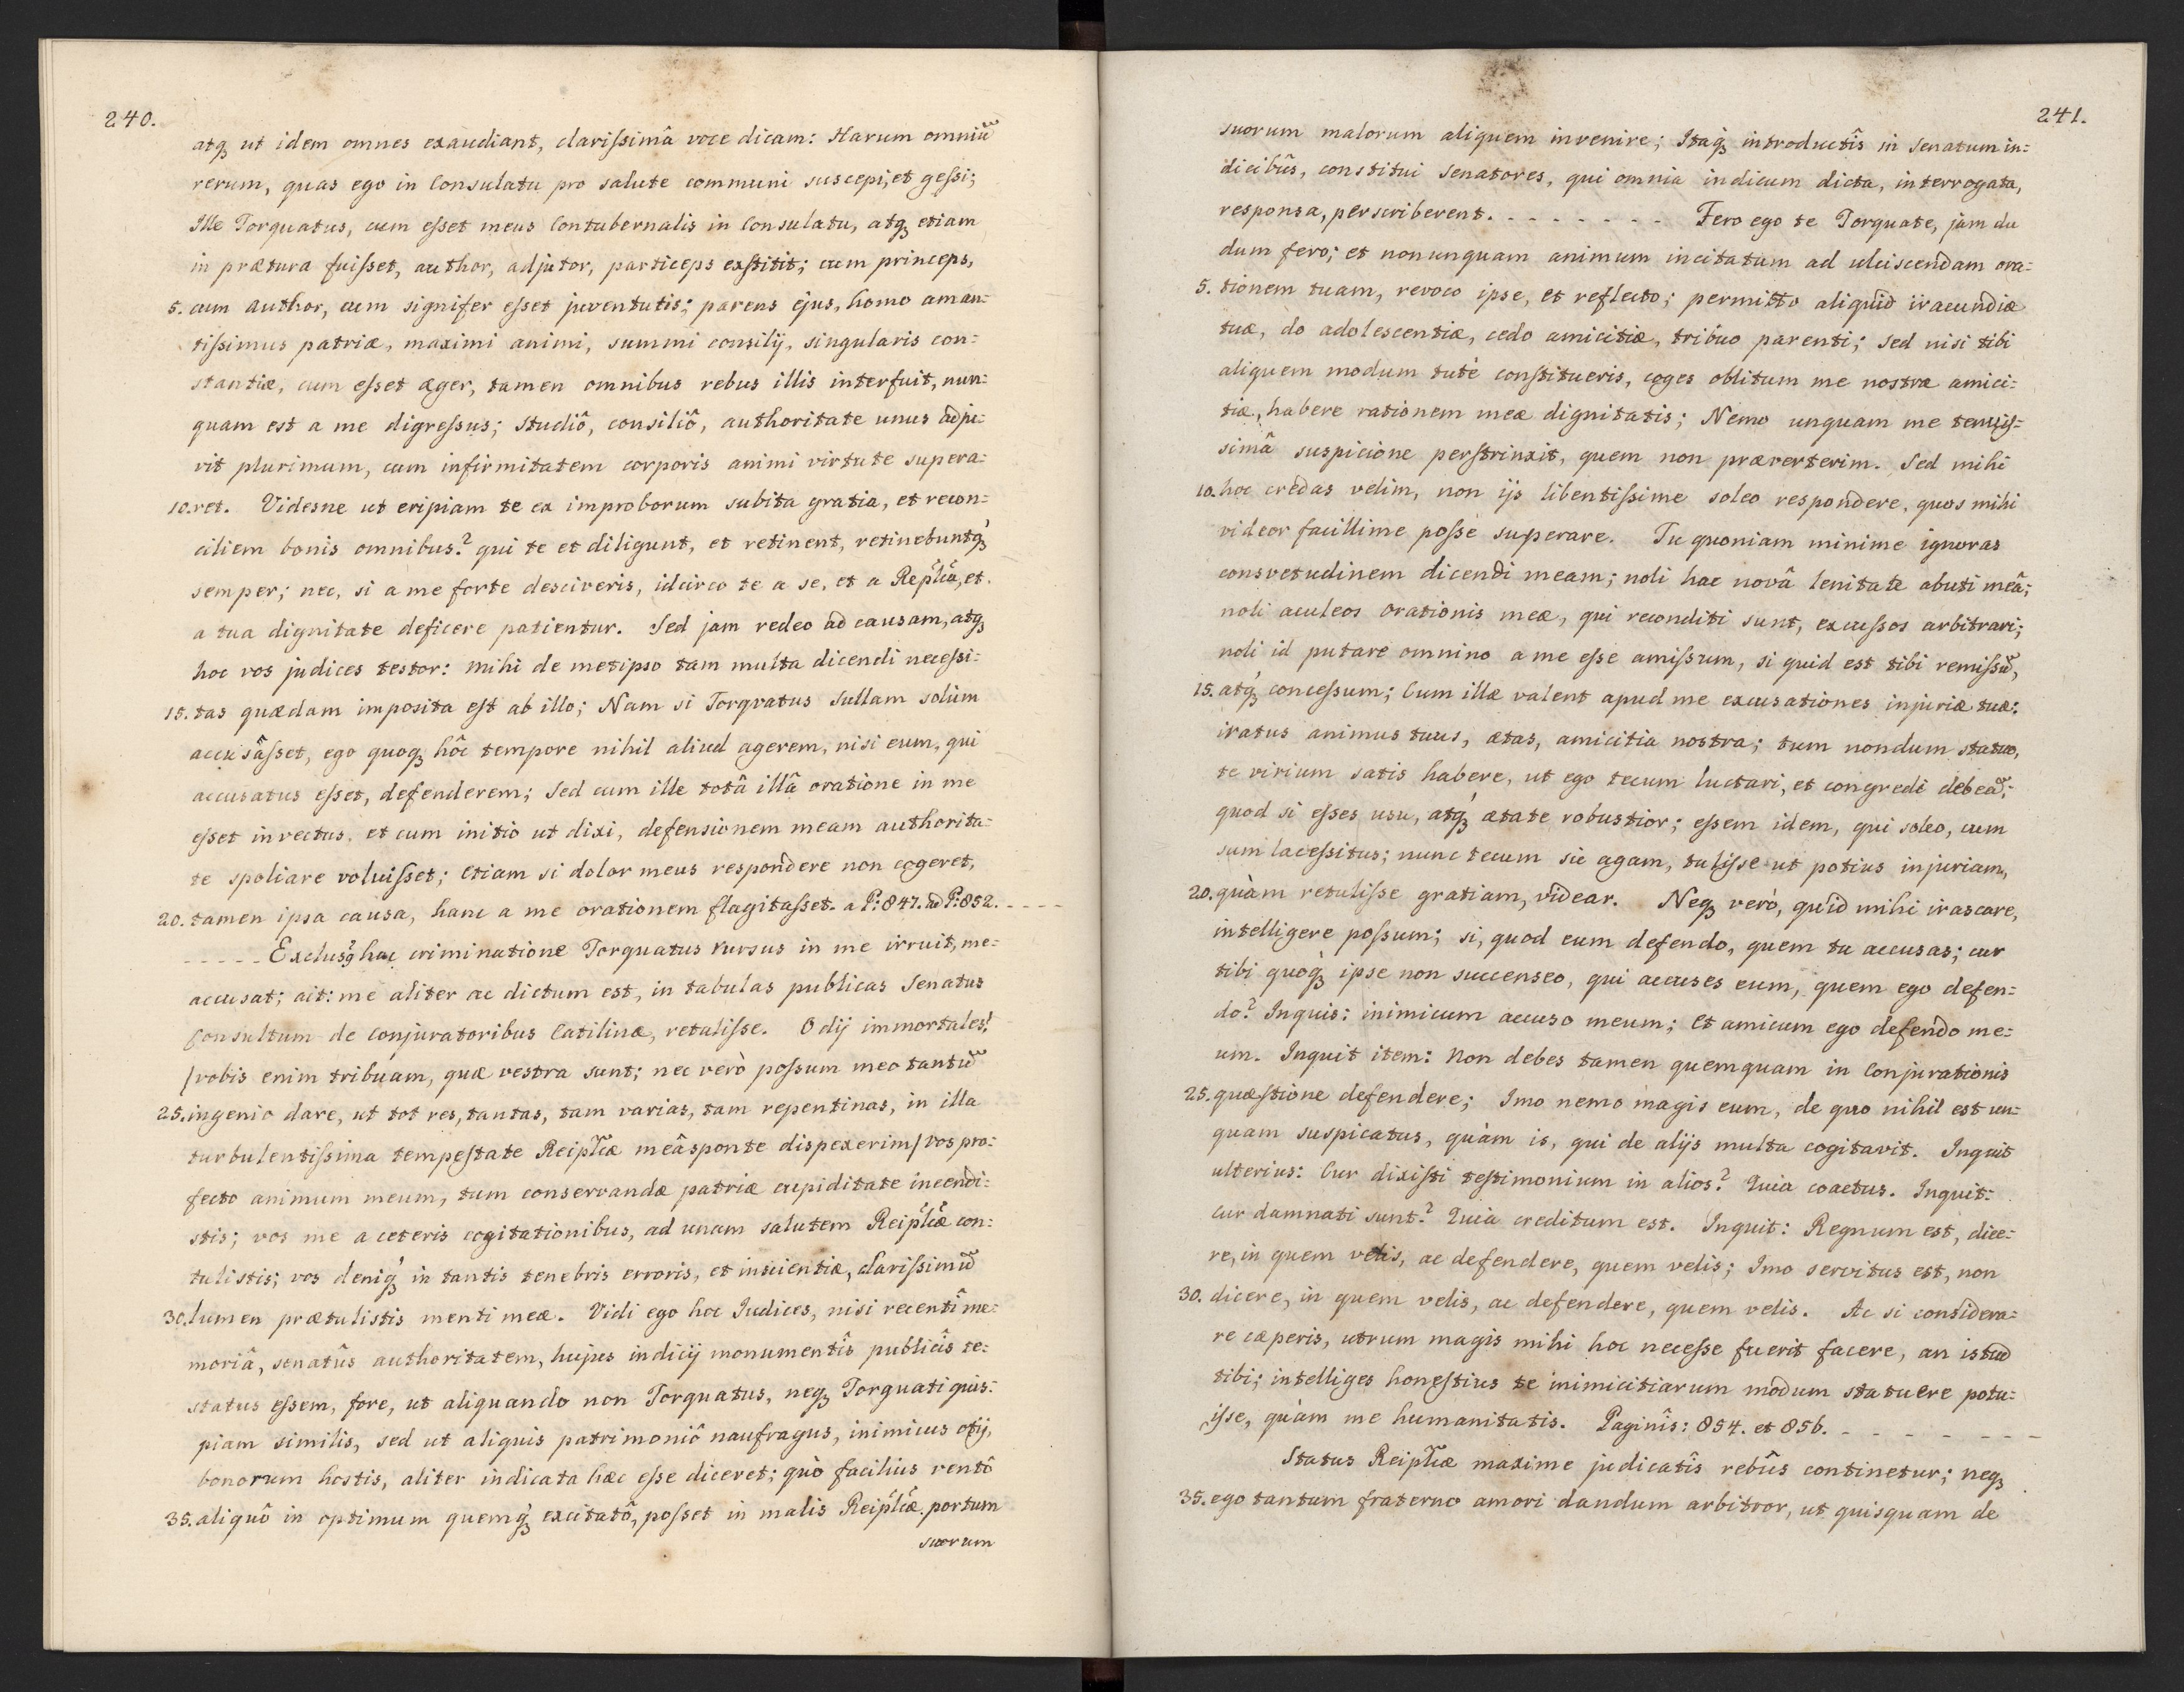 240.
atq₃ ut idem omnes exaudiant, clariſsimâ voce dicam: Harum omniũ
rerum, quas ego in Consulatu pro salute communi suscepi, et geſsi;
Ille Torquatus, cum eſset meus Contubernalis in Consulatu, atq₃ etiam
in prætura fuiſset, author, adjutor, particeps exſtitit; cum princeps,
5. cum author, cum signifer eſset juventutis; parens ejus, homo aman=
tiſsimus patriæ, maximi animi, summi consilij, singularis con=
stantiæ, cum eſset æger, tamen omnibus rebus illis interfuit, nun=
quam est a me digreſsus; studiô, consiliô, authoritate unus adju=
vit plurimum, cum infirmitatem corporis animi virtute supera=
10. ret. Videsne ut eripiam te ex improborum subita gratia, et recon=
ciliem bonis omnibus? qui te et diligunt, et retinent, retinebuntq́₃
semper; nec, si a me forte desciveris, idcirco te a se, et a Rep̃lica, et
a tua dignitate deficere patientur. Sed jam redeo ad causam, atq₃
hoc vos judices testor: mihi de metipso tam multa dicendi neceſsi=
15. tas quædam imposita eſt ab illo; Nam si Torqvatus Sullam solùm
accusâſset, ego quoq₃ hôc tempore nihil aliud agerem, nisi eum, qui
accusatus eſset, defenderem; Sed cum ille totâ illâ oratione in me
eſset invectus, et cum initio ut dixi, defensionem meam authorita=
te spoliare voluiſset; etiam si dolor meus respondere non cogeret,
20. tamen ipsa causa, hanc a me orationem flagitaſset. a P: 847. ad P: 852. - - - -
- - - - - Exclusq₃ hac criminatione Torquatus rursus in me irruit, me=
accusat; ait: me aliter ac dictum est, in tabulas publicas Senatus
Consultum de conjuratoribus Catilinæ, retuliſse. O dij immortales!
/vobis enim tribuam, quæ vestra sunt; nec verò poſsum meo tantũ
25. ingenio dare, ut tot res, tantas, tam varias, tam repentinas, in illa
turbulentiſsima tempeſtate Reip̃licæ meâ sponte dispexerim/ vos pro=
fecto animum meum, tum conservandæ patriæ cupiditate incendi=
stis; vos me a ceteris cogitationibus, ad unam salutem Reip̃licæ con=
tulistis; vos deniq́₃ in tantis tenebris erroris, et inscientiæ, clariſsimũ
30. lumen prætulistis menti meæ. Vidi ego hoc Iudices, nisi recentî me=
moriâ, senatûs authoritatem, hujus indicij monumentîs publicîs te=
status eſsem, fore, ut aliquando non Torquatus, neq₃ Torquati quis=
piam similis, sed ut aliquis patrimoniô naufragus, inimicus otij,
bonorum hostis, aliter indicata hæc eſse diceret; quò faciliùs ventô
35. aliquô in optimum quemq́₃ excitatô, poſset in malis Reip̃licæ portum
suorum
241.
suorum malorum aliquem invenire; Itaq́₃ introductîs in Senatum in=
dicibûs, constitui senatores, qui omnia indicum dicta, interrogata,
responsa, perscriberent. - - - - - - - - Fero ego te Torquate, jam du
dum fero; et nonunquam animum incitatum ad ulciscendam ora=
5. tionem tuam, revoco ipse, et reflecto; permitto aliquid iracundiæ
tuæ, do adolescentiæ, cedo amicitiæ, tribuo parenti; sed nisi tibi
aliquem modum tutè conſtitueris, coges oblitum me nostræ amici=
tiæ, habere rationem meæ dignitatis; Nemo unquam me tenuiſ=
simâ suspicione perſtrinxit, quem non præverterim. Sed mihi
10. hoc credas velim, non ijs libentiſsime soleo respondere, quos mihi
videor facillime poſse superare. Tu quoniam minime ignoras
consvetudinem dicendi meam; noli hac novâ lenitate abuti meâ;
noli aculeos orationis meæ, qui reconditi sunt, excuſsos arbitrari;
noli id putare omnino a me eſse amiſsum, si quid est tibi remiſsũ,
15. atq́₃ conceſsum; Cum illæ valent apud me excusationes injuriæ tuæ:
iratus animus tuus, ætas, amicitia nostra; tum nondum statuo,
te virium satis habere, ut ego tecum luctari, et congredi debeã;
quod si eſses usu, atq́₃ ætate robustior; eſsem idem, qui soleo, cum
sum laceſsitus; nunc tecum sic agam, tuliſse ut potius injuriam,
20. quàm retuliſse gratiam, videar. Neq₃ verò, quid mihi irascare,
intelligere poſsum; si, quod eum defendo, quem tu accusas; cur
tibi quoq́₃ ipse non succenseo, qui accuses eum, quem ego defen=
do? Inquis: inimicum accuso meum; Et amicum ego defendo me=
um. Inquit item: Non debes tamen quemquam in Conjurationis
25. quæſtione defendere; Imo nemo magis eum, de quo nihil est un=
quam suspicatus, quàm is, qui de alijs multa cogitavit. Inquit
ulterius: Cur dixiſti teſtimonium in alios? Quia coactus. Inquit:
Cur damnati sunt? Quia creditum est. Inquit: Regnum est, dice=
re, in quem velis, ac defendere, quem velis; Imo servitus est, non
30. dicere, in quem velis, ac defendere, quem velis. Ac si considera=
re cæperis, utrum magis mihi hoc neceſse fuerit facere, an istud
tibi; intelliges honeſtius te inimicitiarum modum statuere potu=
iſse, quàm me humanitatis. Paginîs: 854. et 856. - - - - - - -
Status Reip̃licæ maxime judicatîs rebûs continetur; neq₃
35. ego tantum fraterno amori dandum arbitror, ut quisquam de